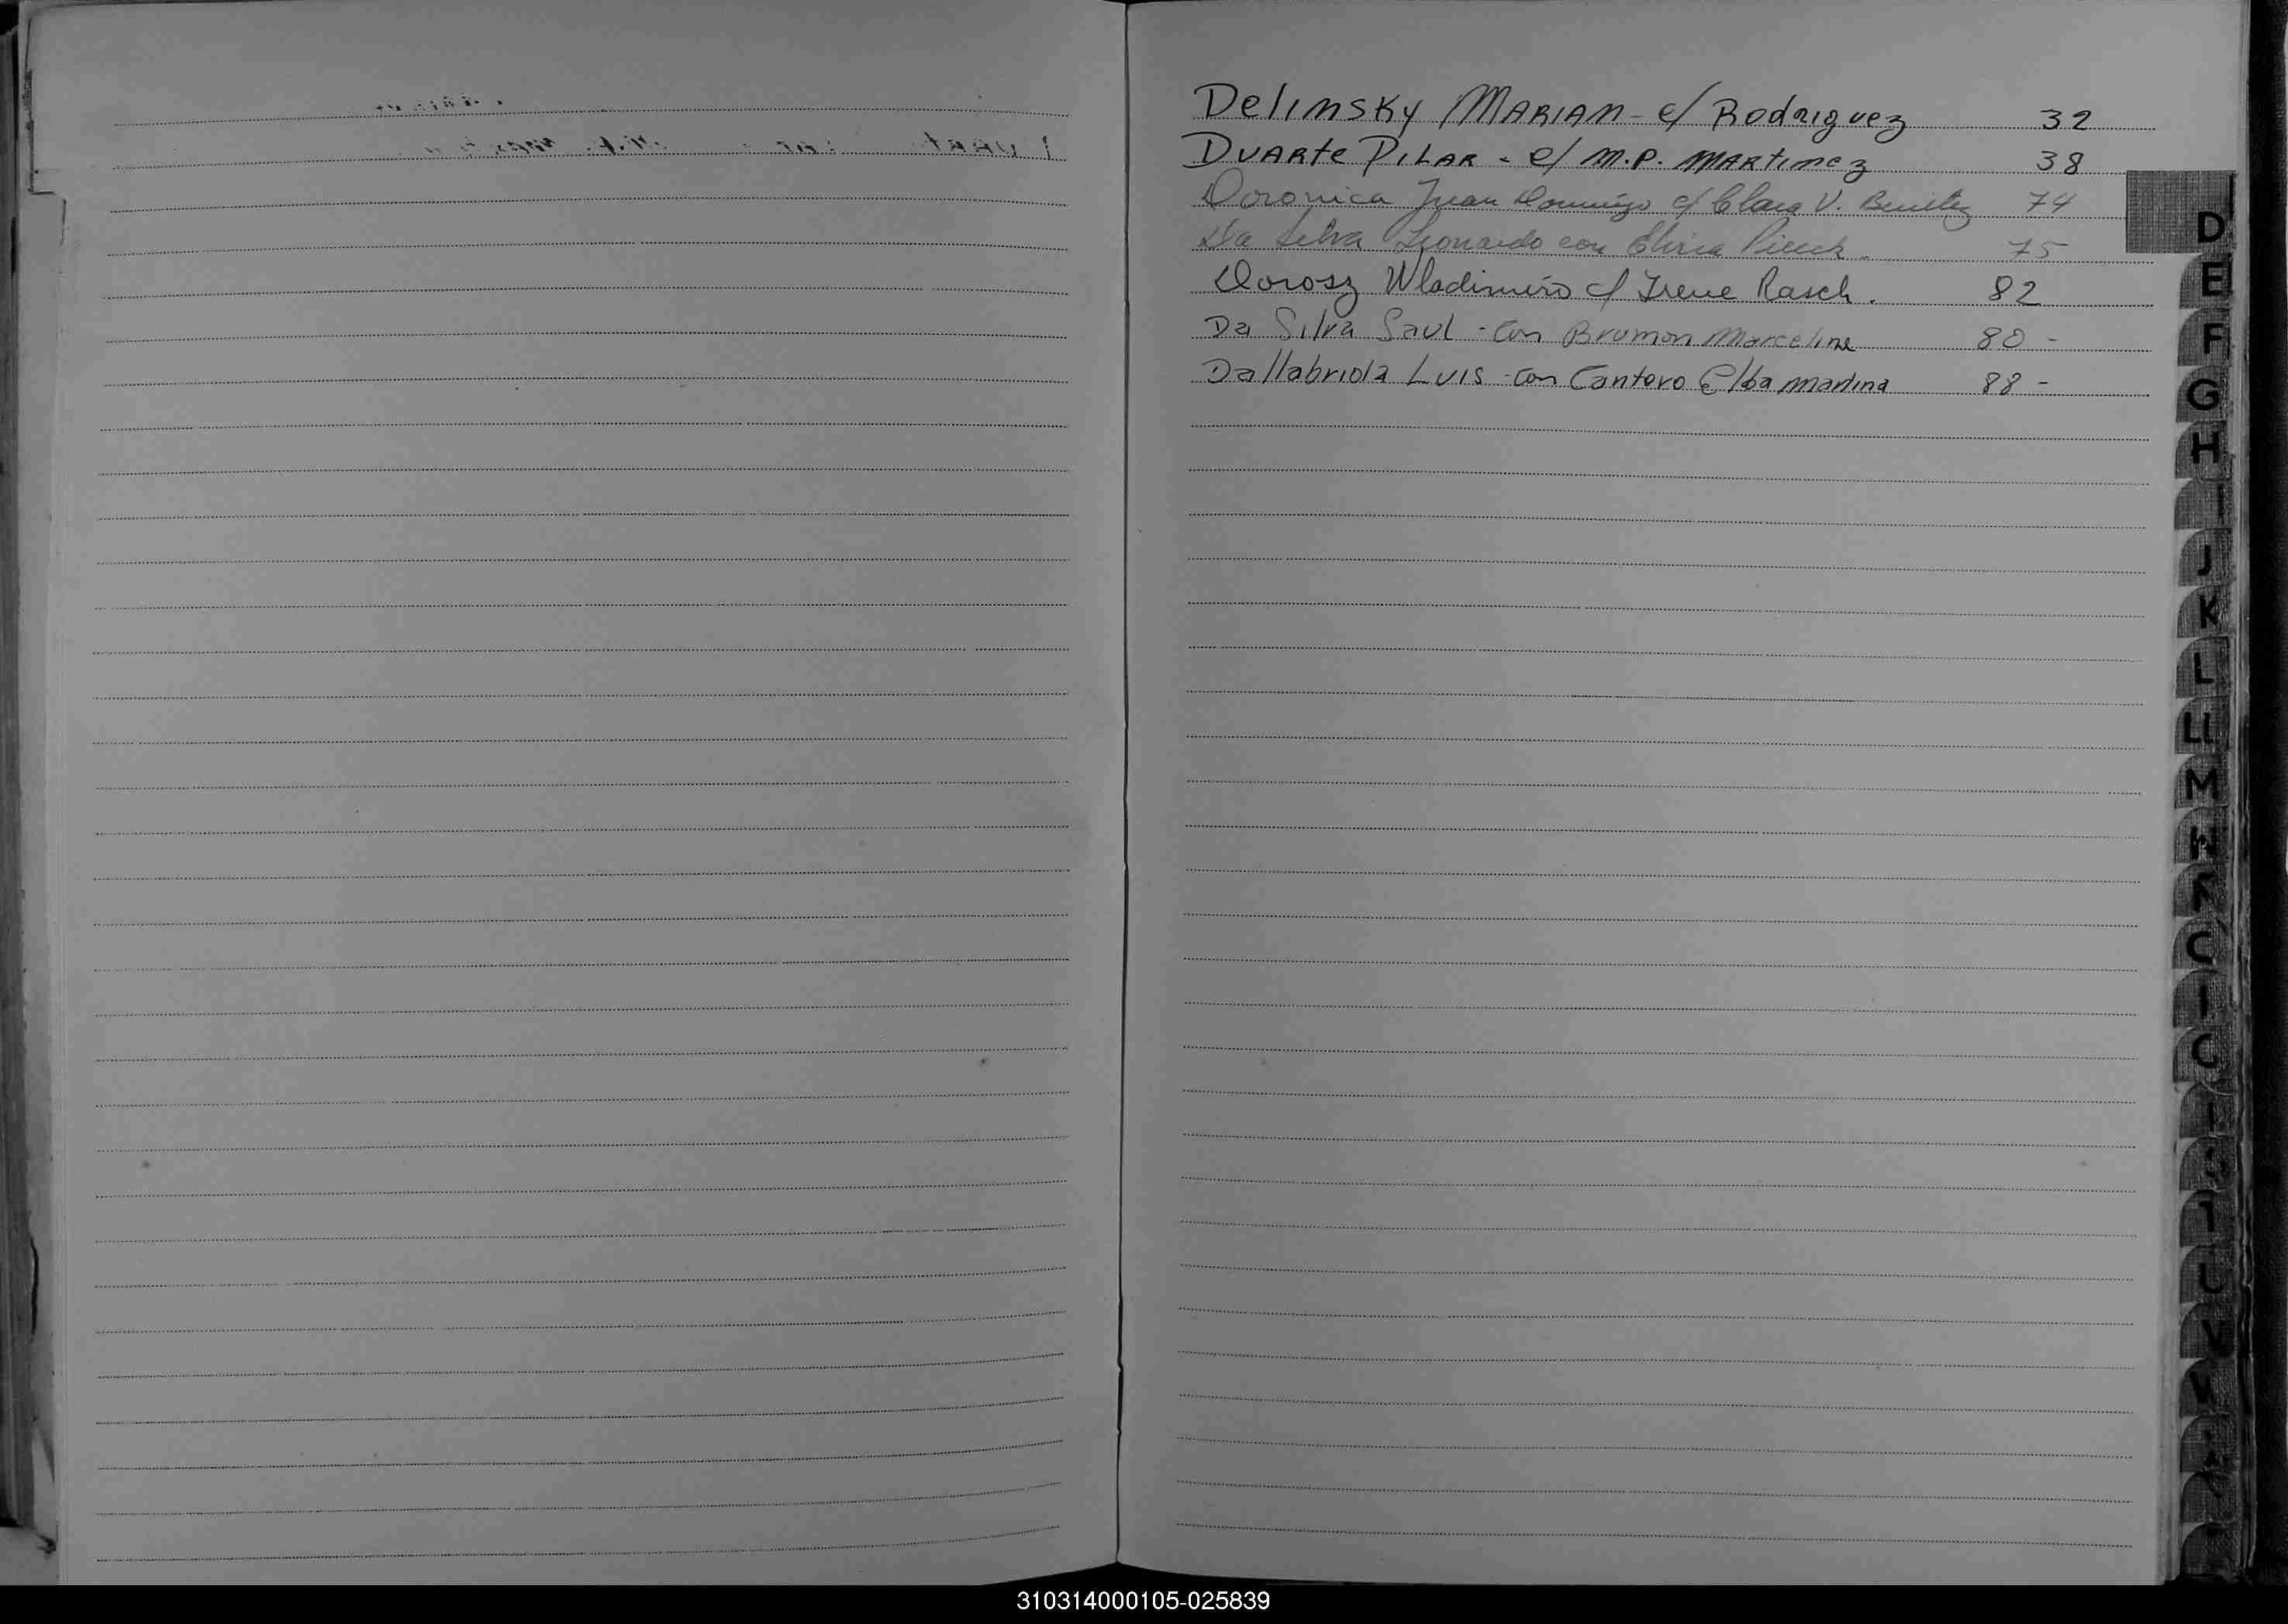 Delinsky MARIAN - c/ Rodriguez 32
DUARte PILAR - c/ M.P. MARtinez 38
Doronica Juan Domingo c/ Clara V. Benitez 74
Da Silva Leonardo con 75
Dorosz Wladimiro c/ Irene Rasch. 82
Da Silva Saul - con Brumon Marceline 80 -
Dallabrida Luis - con Cantero Elba Martina 88 -
D
E
F
G
H
I
J
K
L
LL
M
310314000105-025839